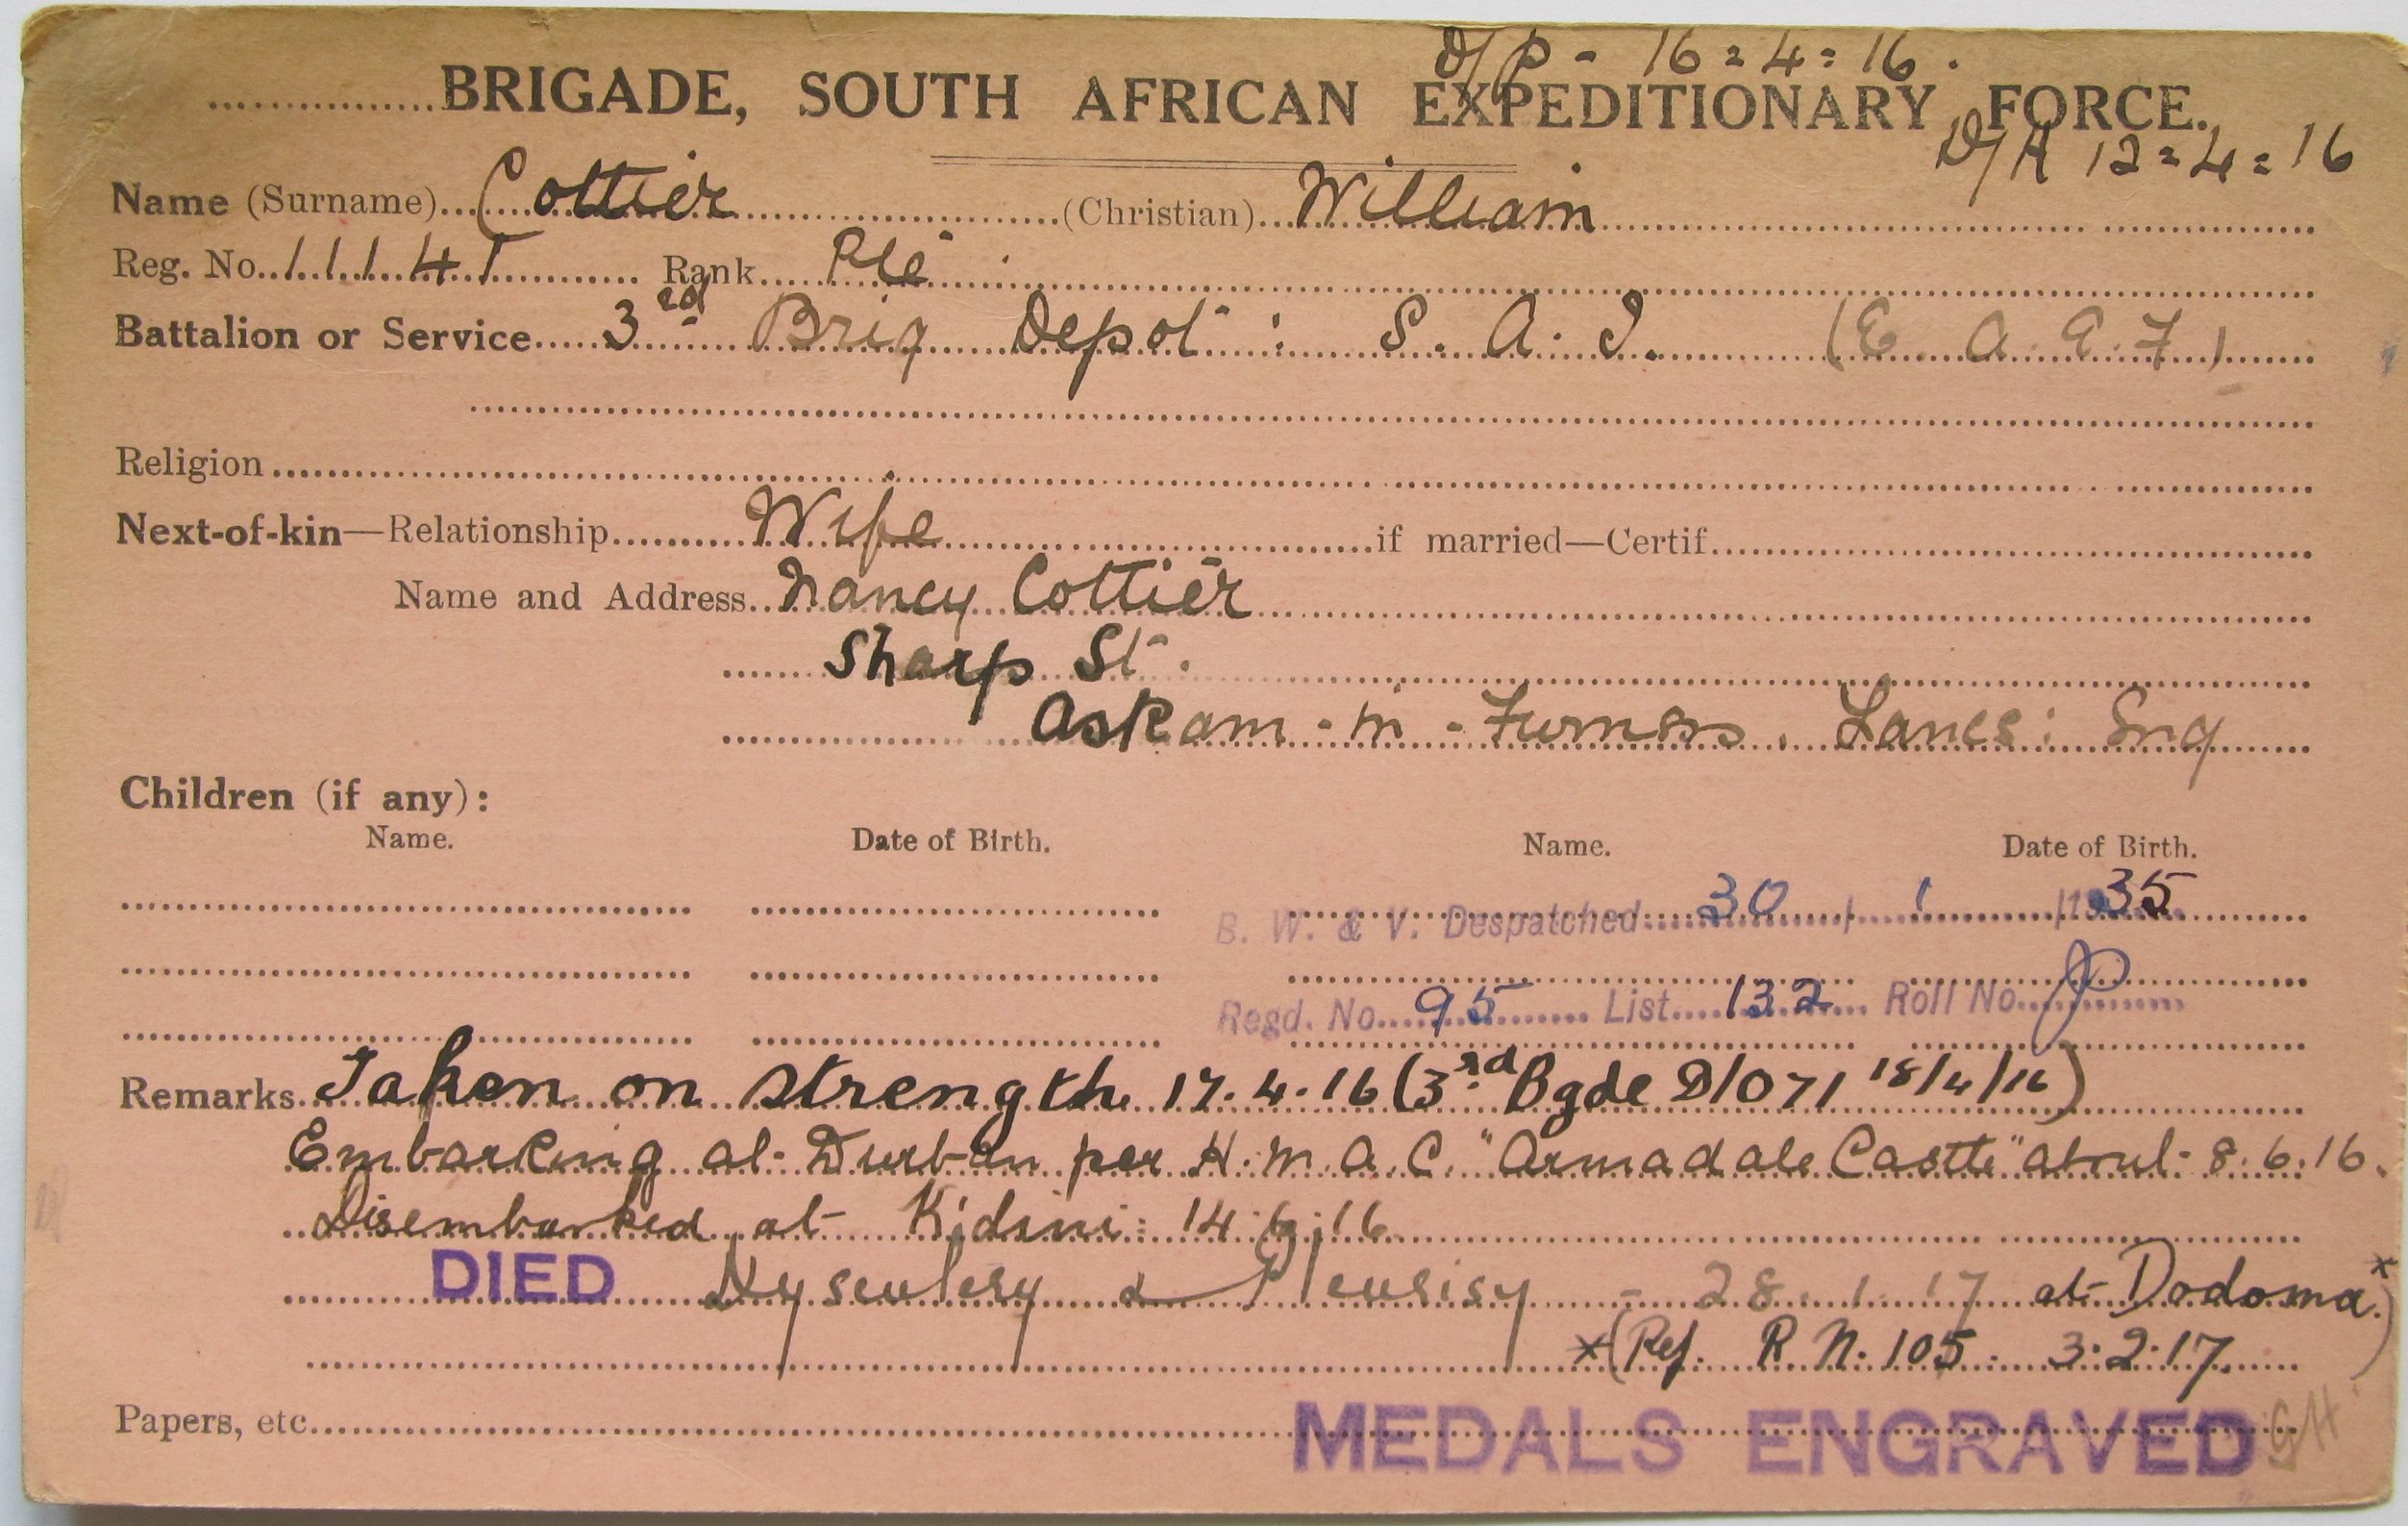 D/P - 16=4=16.
BRIGADE, SOUTH AFRICAN EXPEDITIONARY FORCE.
D/A 12=4=16
Name (Surname) Cottier (Christian) William
Reg. No. 11141 Rank Pte
Battalion or Service 3rd Brig Depot: S.A.I. (E A E F)
Religion
Next-of-kin—Relationship Wife if married—Certif.
Name and Address Nancy Cottier
Sharp St.
Askam-in-Furness, Lancs: Eng
Children (if any):
Name. Date of Birth. Name. Date of Birth.
B. W. & V. Despatched 30 / 1 /1935
Regd. No. 95 List 132 Roll No.
Remarks. Taken on strength 17.4.16 (3rd Bgde D/O 71 18/4/16)
Embarking at Durban per H.M.A.C. "Armadale Castle" about 8.6.16.
Disembarked at Kidini: 14:6:16
DIED Dysentery & Pleurisy - 28.1.17 at Dodoma*
*(Ref. R.N. 105. 3:2:17.)
Papers, etc.
MEDALS ENGRAVED GH